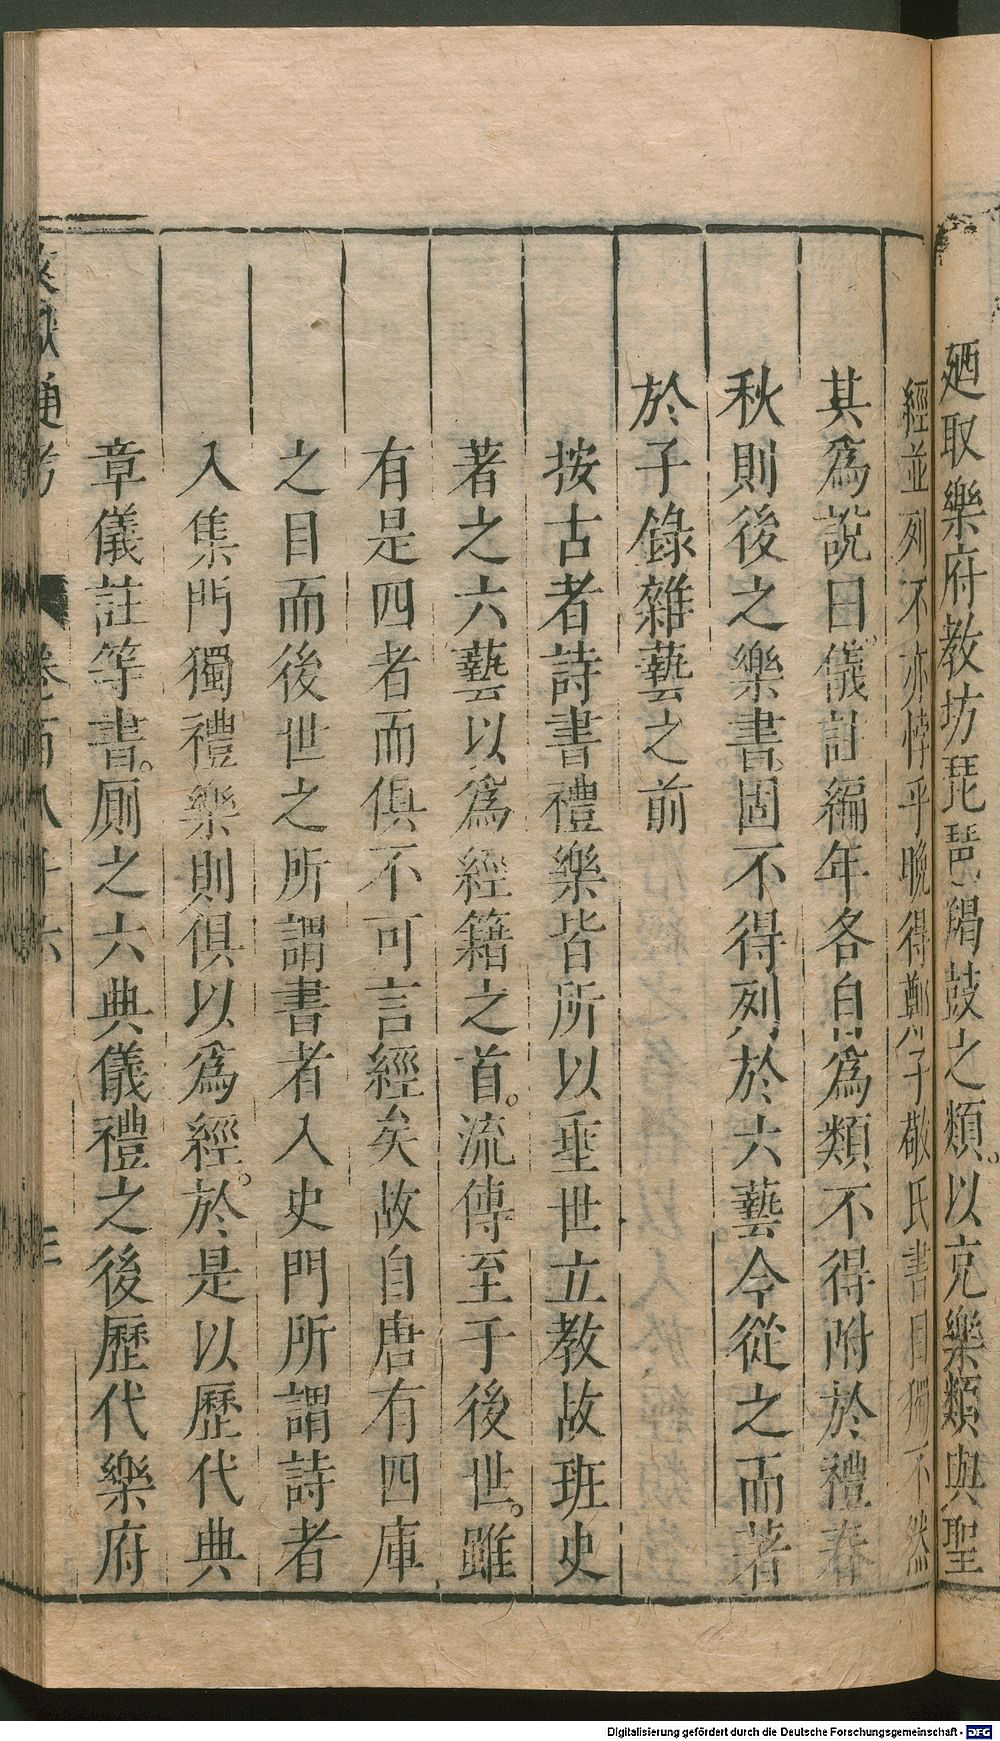 廼取樂府教坊琵琶羯鼓之類。以充樂類與聖
經並列不亦悖乎晚得鄭子敬氏書目獨不然
其爲說曰。儀註編年各自爲類不得附於禮春
秋則後之樂書。固不得列於六藝今從之而著
於子錄雜藝之前
按古者詩書禮樂皆所以垂世立教故班史
著之六藝以爲經籍之首。流傳至于後世。雖
有是四者而俱不可言經矣故自唐有四庫
之目而後世之所謂書者入史門所謂詩者
入集門獨禮樂則俱以爲經。於是以歷代典
章儀註等書。厠之六典儀禮之後歷代樂府
文獻通考 卷百八十六 三
Digitalisierung gefördert durch die Deutsche Forschungsgemeinschaft - DFG